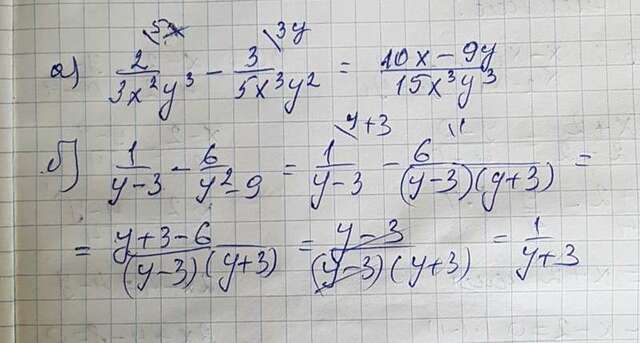 а) 2/3x²y³ \5x − 3/5x³y² \3y = 10x − 9y/15x³y³
б) 1/y−3 − 6/y²−9 = 1/y−3 \y+3 − 6/(y−3)(y+3) \1 =
= y+3−6/(y−3)(y+3) = y−3/(y−3)(y+3) = 1/y+3